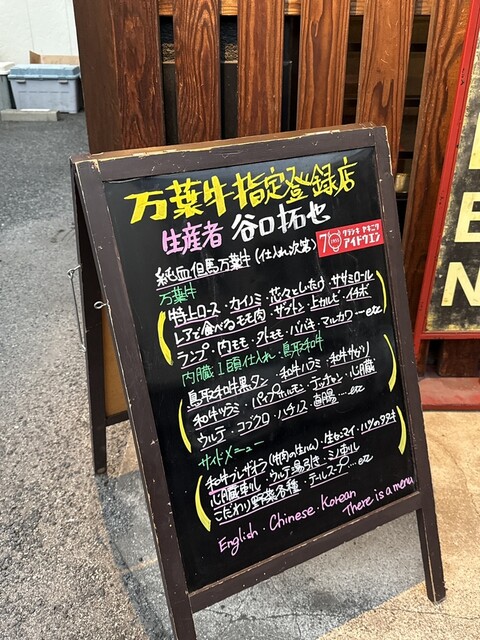 万葉牛指定登録店
生産者 谷口拓也
純血但馬万葉牛(仕入れ次第)
7
クラシキ ヤキニク
アイドウエン
万葉牛
特上ロース・カイノミ・芯々としたろ・ササミロール
レアで食べるモモ肉・ザブトン・上カルビ・イチボ
ランプ・内モモ・外モモ・ババキ・マルカワ…etc
内臓1頭仕入れ・鳥取和牛
鳥取和牛黒タン・和牛ハミ・和牛サガリ
和牛ツラミ・パイプホルモン・テッチャン・心臓
ウルテ・コブクロ・ハチノス・直腸…etc
サイドメニュー
和牛ブレザオラ(牛肉の生ハム)・生センマイ・ハツのタタキ
心臓串ル・ウルテ湯引き・ミノ刺し
こだわり野菜各種・テールスープ…etc
English・Chinese・Korean
There is a menu
E
N